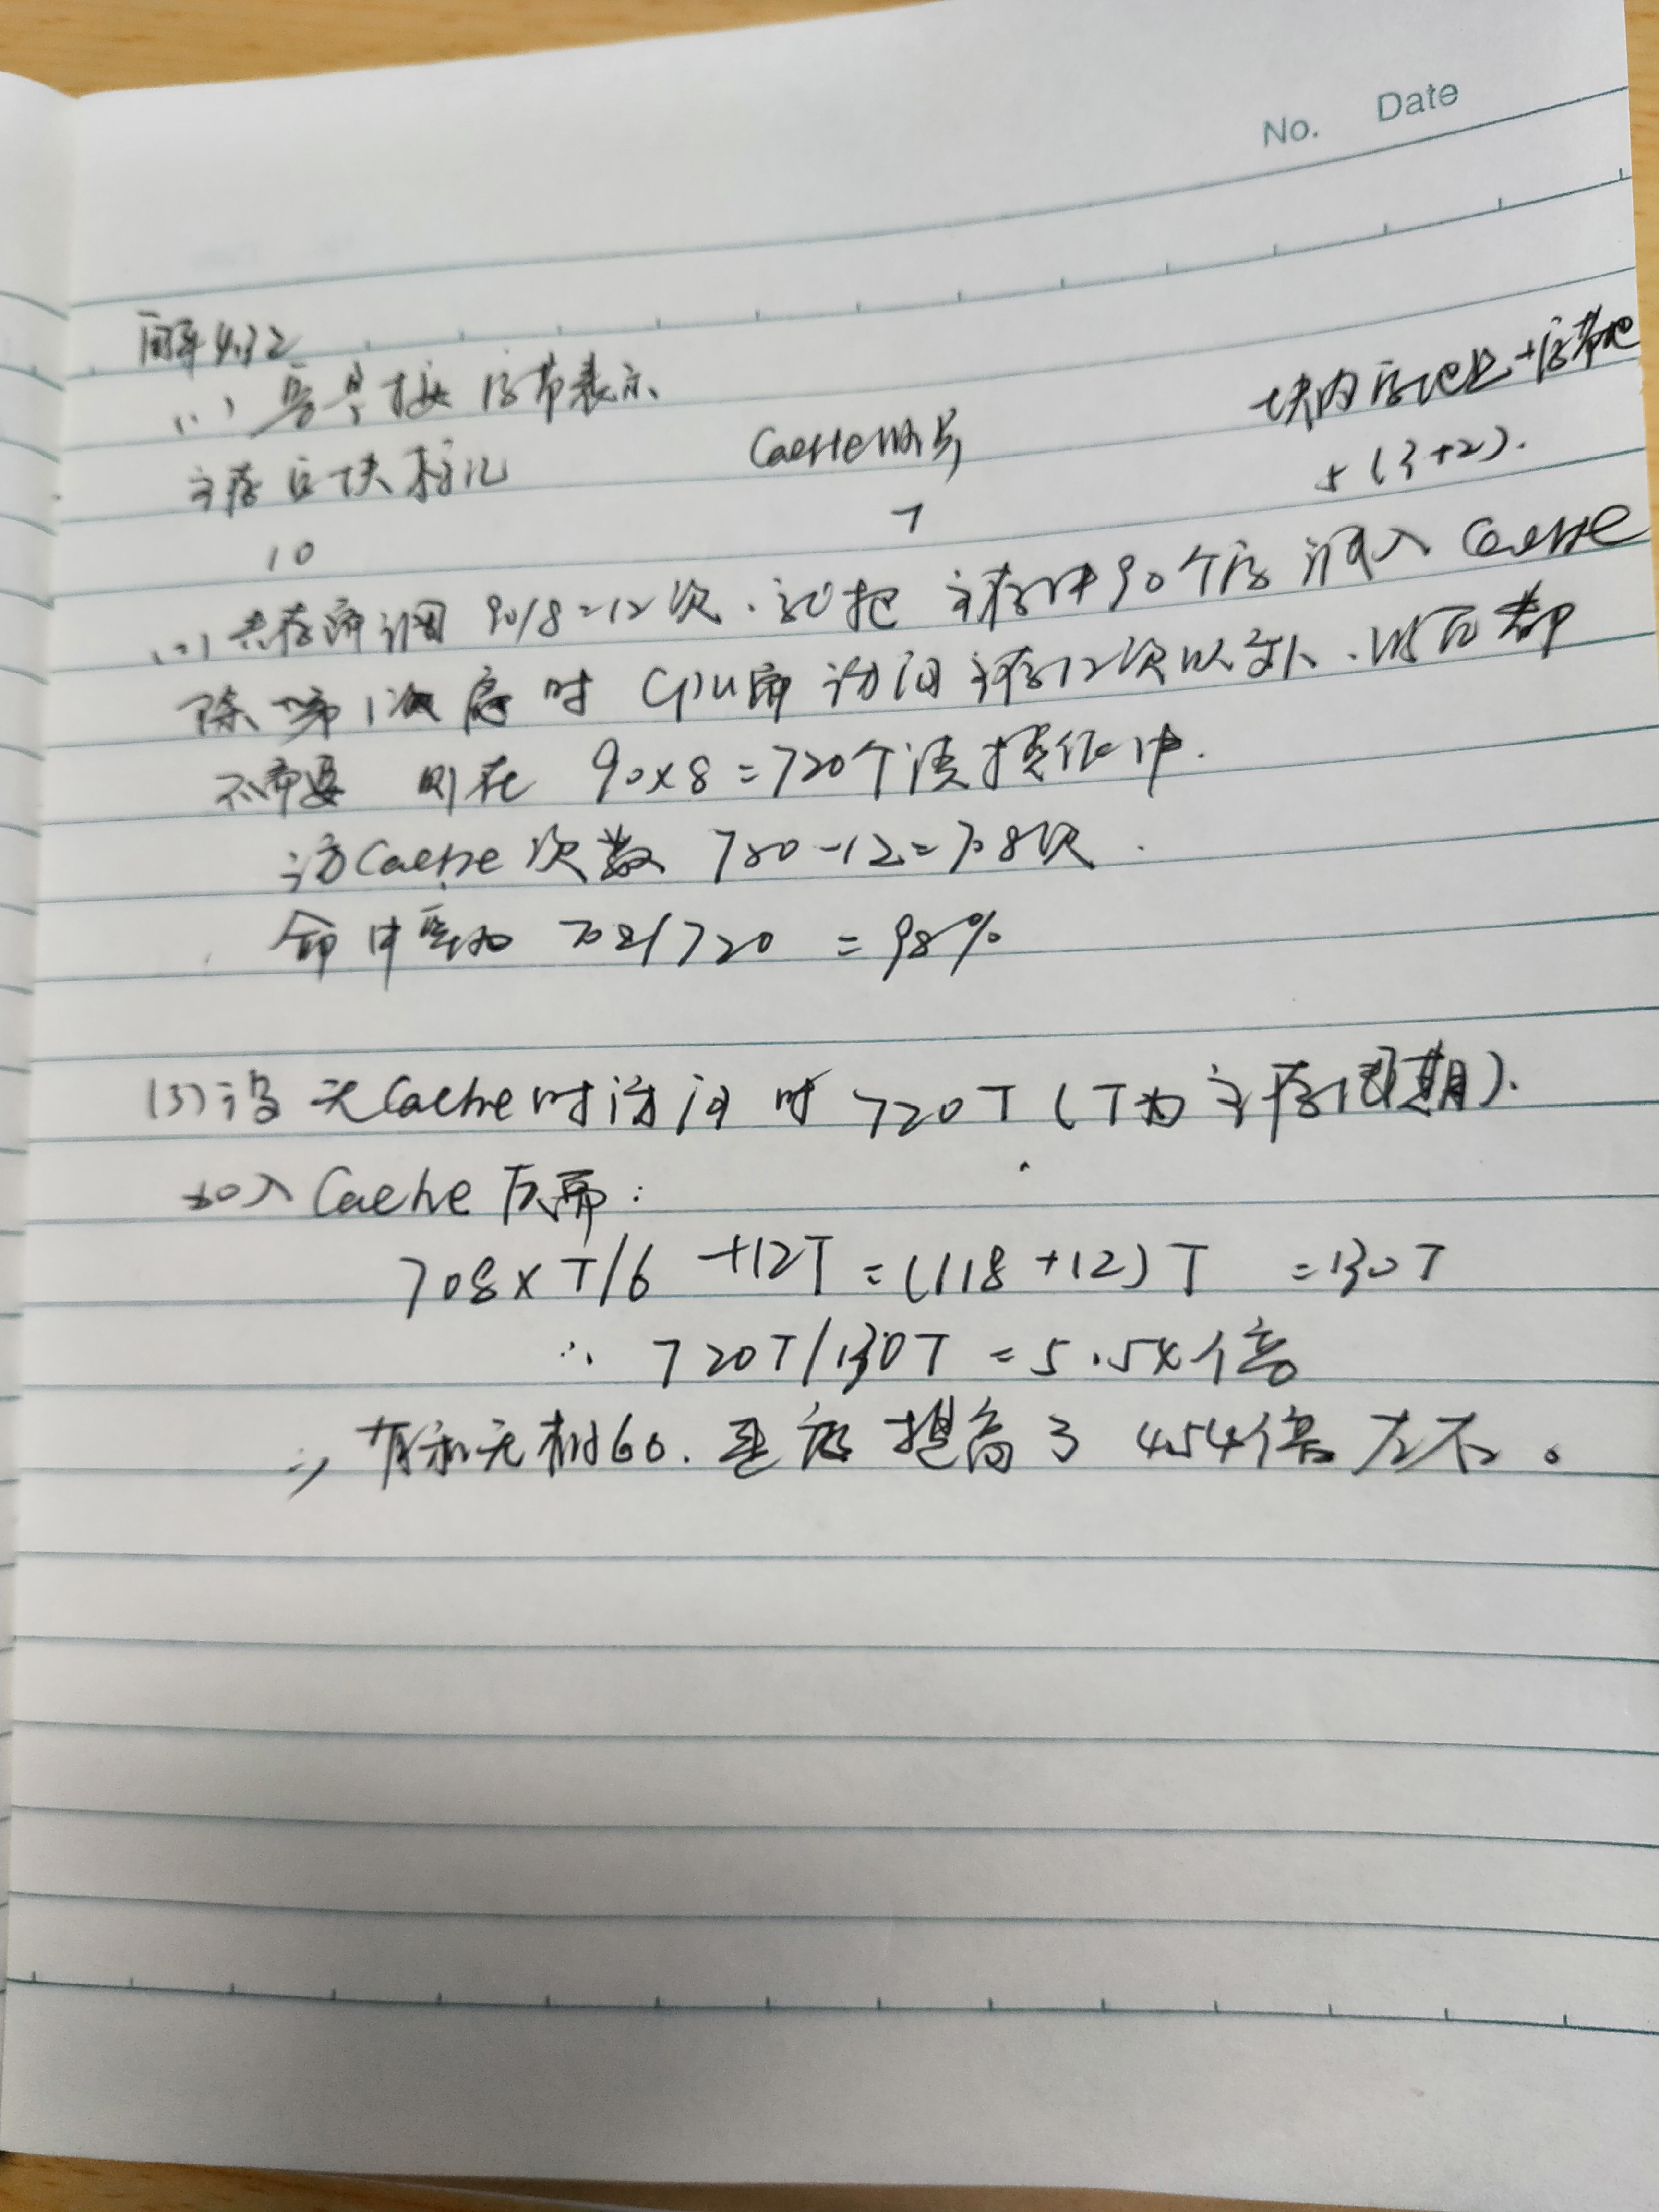 No. Date
解4.32
(1) 字块按字节表示
主存字块标记 Cache块号 块内字地址+字节地
10 7 5(3+2).
(2) 共存需调 90/8=12次. 就把主存中90个字调入Cache
除第1次序时 CPU需访问主存12次以外.以后都
不需要 则在 90×8=720个读操作中.
访Cache次数 720-12=708次.
命中率为 708/720 = 98%
(3)设无Cache时访问时 720T (T为主存周期).
加入Cache后需:
708×T/6 +12T=(118+12)T =130T
∴ 720T/130T =5.54倍
∴ 有和无相比.速度提高了 4.54倍左右。